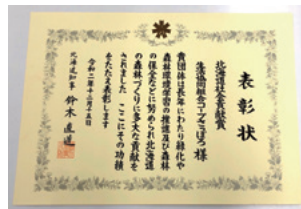 表彰状
北海道社会貢献賞
生活協同組合コープさっぽろ 様
貴団体は長年にわたり緑化や
森林環境学習の推進及び森林
の保全などに努められ北海道
の森林づくりに多大な貢献を
されました ここにその功績
をたたえ表彰します
令和二年十二月十五日
北海道知事 鈴木直道